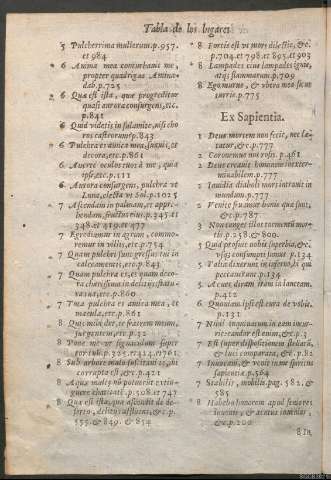 Tabla de los lugares
5 Pulcherrima mulierum.p.957.
et 984
* 6 Anima mea conturbauit me,
propter quadrigas Amina-
dab.p.725
* 6 Quæ est ista, quæ progreditur
quasi aurora consurgens, etc.
p.841
* 6 Quid videtis in sulamite, nisi cho
ros castrorum?p.843
* 6 Pulchra es amica mea, suauis, et
decora, etc.p.861
6 Auerte oculos tuos à me, quia
ipse, etc.p.111
6 Aurora consurgens, pulchra vt
Luna, electa vt Sol.p.1025
* 7 Ascendam in palmam, et appre-
hendam, fructus eius.p.345. et
348. et 419. et 477
* 7 Egrediamur in agrum, commo-
remur in villis, etc.p.754
* 7 Quam pulchri sunt gressus tui in
calceamentis, etc.p.843
* 7 Quam pulchra es, et quam deco-
ra charissima in delitiis, statu-
ra tua, etc.p.860
* 7 Tota pulchra es amica mea, et
macula, etc.p.861
8 Quis mihi det, te fratrem meum,
sugentem, etc.p.52
* 8 Pone me vt signaculum super
cor tuũ.p.325.
* 8 Sub arbore malo suscitaui te, ibi
corrupta est, &c.p.421
* 8 Aquæ multæ nõ potuerũt extin-
guere charitatẽ.p.508. et 747
* 8 Quæ est ista, quæ ascendit de de-
serto, delitiis affluens, &c.p.
555. & 849. & 854
* 8 Fortis est vt mors dilectio, &c.
p.704. et 798. et 893. et 903
* 8 Lampades eius lampades ignis,
atq; flammarum.p.709
* 8 Ego murus, & vbera mea sicut
turris.p.775
Ex Sapientia.
1 Deus mortem non fecit, nec læ-
tatur, &c.p.777
2 Coronemus nos rosis.p.461
* 2 Deus creauit hominem inexter-
minabilem.p.777
* 2 Inuidia diaboli mors intrauit in
mundum.p.777
* 2 Venite fruamur bonis quæ sunt,
&c.p.787
* 3 Non tanget illos tormentũ mor-
tis p.258. & 800.
* 5 Quid profuit nobis superbia, &c.
vsq; consumpti sumus p.134
* 5 Talia dixerunt in inferno, hi qui
peccauerunt p.134
* 5 Acuet, diram iram in lanceam.
p.412
* 6 Quoniam ipsi est cura de vobis.
p.131
* 7 est enim, &c.p.3
* 7 Est super dispositionem stellarũ,
& luci comparata, &c.p.82
* 7 Inuocaui, & venit in me spiritus
sapientiæ.p.564
* 7 Stabilis, mobilis.pag.582. &
585
* 8 Habebo honorem apud seniores
iuuenis, & acutus inueniar,
&c.p.200
8 In